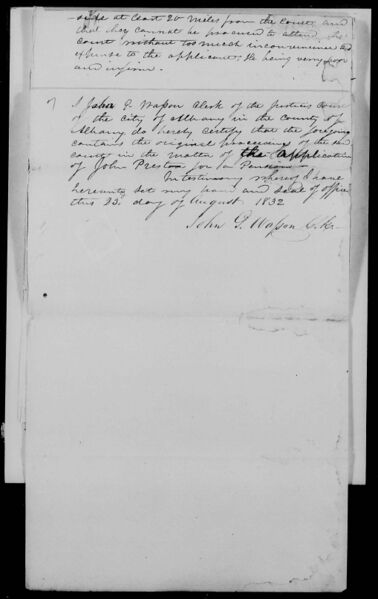 side at least 20 miles from the Court and
that they cannot be procured to attend the
Court without too much inconvenience and
expense to the applicant; he being very poor
and infirm.
I John D Wasson Clerk of the Justices Court
of the city of Albany in the County of
Albany do hereby certify that the foregoing
contains the original proceedings of the said
county in the matter of the application
of John Preston for a Pension
In testimony whereof I have
hereunto set my hand and seal of office
this 23 day of August 1832
John D. Wasson Clk.